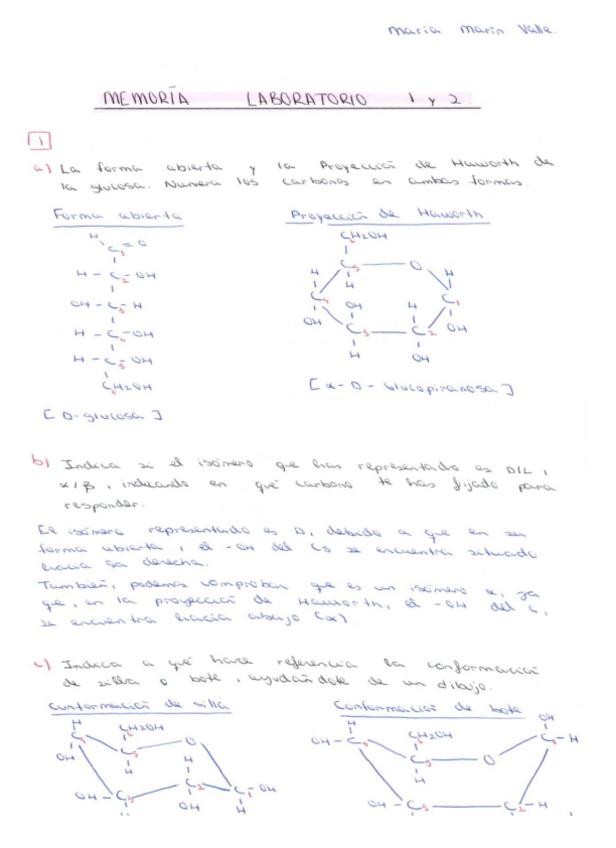 María Marín Valle.
MEMORÍA LABORATORIO 1 y 2.
1
a) La forma abierta y la Proyección de Haworth de
la glucosa. Numera los carbonos en ambas formas.
Forma abierta
Proyección de Haworth
H C1 = O
H - C2 - OH
OH - C3 - H
H - C4 - OH
H - C5 - OH
C6H2OH
[D-glucosa]
C6H2OH
C5 O
H H H
C4 OH H C1
OH C3 C2 OH
H OH
[α-D-Glucopiranosa]
b) Indica si el isómero que has representado es D/L,
α/β, indicando en qué carbono te has fijado para
responder.
El isómero representado es D, debido a que en su
forma abierta, el -OH del C5 se encuentra situado
hacia la derecha.
También, podemos comprobar que es un isómero α, ya
que, en la proyección de Haworth, el -OH del C1
se encuentra hacia abajo (α).
c) Indica a qué hace referencia la conformación
de silla o bote, ayudándote de un dibujo.
Conformación de silla
Conformación de bote
H C6H2OH
C4 O
OH C5 H
H
OH - C3 C2 C1 - OH
H OH H
H C6H2OH OH
OH - C4 C1 - H
C5 O
H
OH - C3 C2 - H